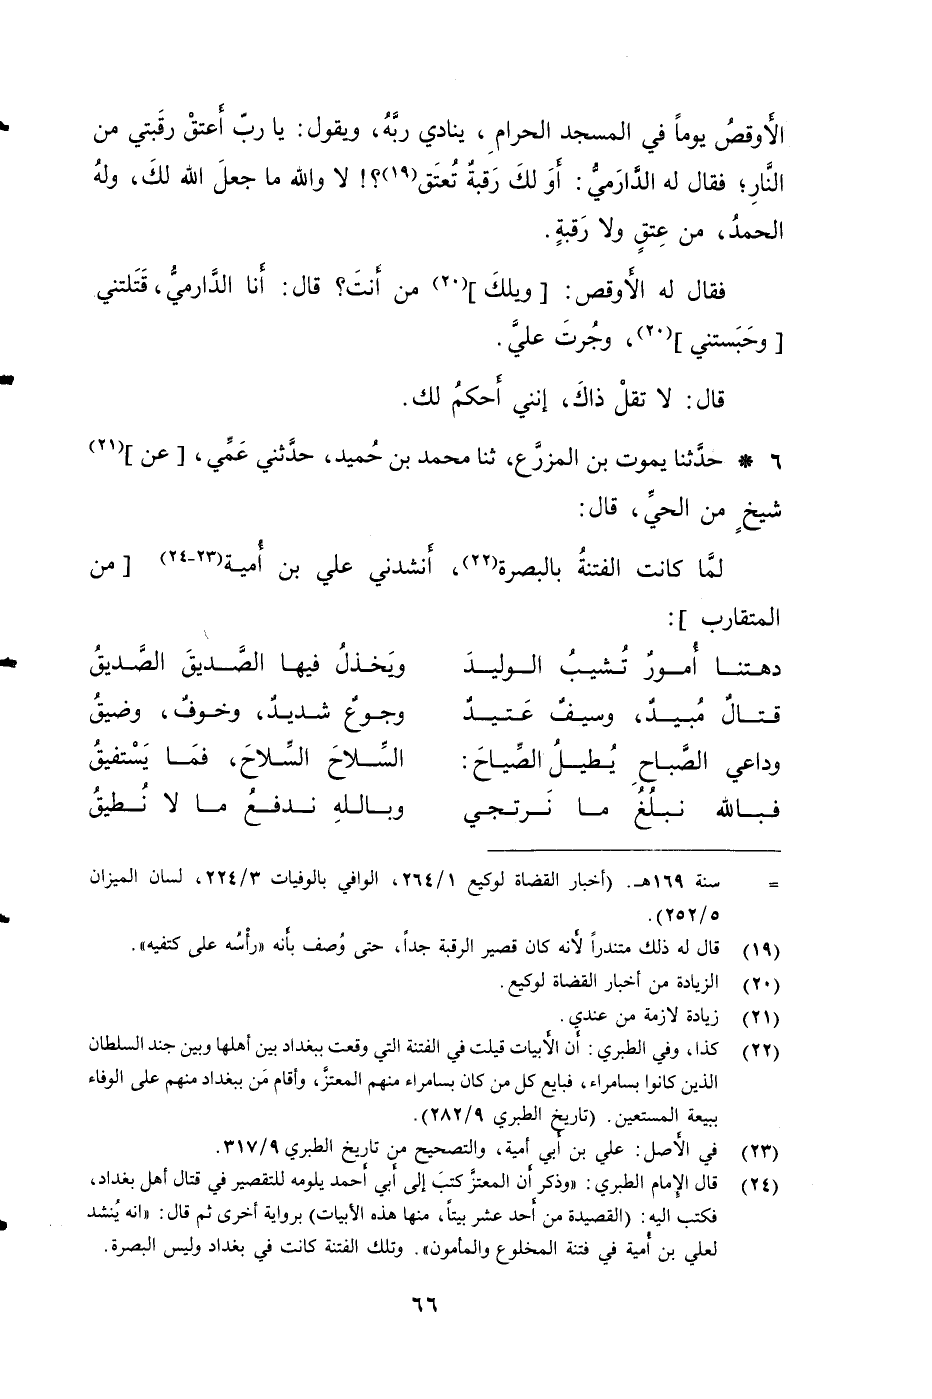 الأَوقصُ يوماً في المسجد الحرامِ، ينادي ربَّهُ، ويقول: يا ربّ أَعتقْ رقَبتي من
النَّارِ؛ فقال له الدَّارَميُّ: أَوَ لكَ رَقبةٌ تُعتَق(١٩)؟! لا والله ما جعلَ الله لكَ، ولهُ
الحمدُ، من عِتقٍ ولا رَقبةٍ.
فقال له الأَوقص: [ ويلكَ ](٢٠) من أَنتَ؟ قال: أَنا الدَّارميُّ، قَتَلتني
[ وحَبَستني ](٢٠)، وجُرتَ عليَّ.
قال: لا تقلْ ذاكَ، إنني أَحكمُ لك.
٦ * حدَّثنا يموت بن المزرَّع، ثنا محمد بن حُميد، حدَّثني عَمِّي، [ عن ](٢١)
شيخٍ من الحيِّ، قال:
لمَّا كانت الفتنةُ بالبصرة(٢٢)، أَنشدني علي بن أُمية(٢٣-٢٤) [ من
المتقارب ]:
دهتنـا أُمـورٌ تُـشيبُ الـوليـدَ ويَخذلُ فيهـا الصَّـديقَ الصَّديقُ
قتـالٌ مُبيـدٌ، وسيفٌ عَـتيـدٌ وجـوعٌ شديـدٌ، وخـوفٌ، وضيقُ
وداعي الصَّباحِ يُطيـلُ الصِّياحَ: السِّـلاحَ السِّـلاحَ، فمَـا يَسْتفيقُ
فبـالله نبـلُغُ مـا نَـرتـجي وبـاللهِ نـدفـعُ مـا لا نُـطيقُ
= سنة ١٦٩هـ. (أخبار القضاة لوكيع ٢٦٤/١، الوافي بالوفيات ٢٢٤/٣، لسان الميزان
٢٥٢/٥).
(١٩) قال له ذلك متندراً لأنه كان قصير الرقبة جداً، حتى وُصف بأنه «رأْسُه على كتفيه».
(٢٠) الزيادة من أخبار القضاة لوكيع.
(٢١) زيادة لازمة من عندي.
(٢٢) كذا، وفي الطبري: أَن الأَبيات قيلت في الفتنة التي وقعت ببغداد بين أهلها وبين جند السلطان
الذين كانوا بسامراء، فبايع كل من كان بسامراء منهم المعتزَّ، وأقام مَن ببغداد منهم على الوفاء
ببيعة المستعين. (تاريخ الطبري ٢٨٢/٩).
(٢٣) في الأَصل: علي بن أَبي أمية، والتصحيح من تاريخ الطبري ٣١٧/٩.
(٢٤) قال الإمام الطبري: «وذكر أن المعتزَّ كتبَ إلى أَبي أَحمد يلومه للتقصير في قتال أهل بغداد،
فكتب اليه: (القصيدة من أحد عشر بيتاً، منها هذه الأبيات) برواية أخرى ثم قال: «انه يُنشد
لعلي بن أُمية في فتنة المخلوع والمأمون». وتلك الفتنة كانت في بغداد وليس البصرة.
٦٦